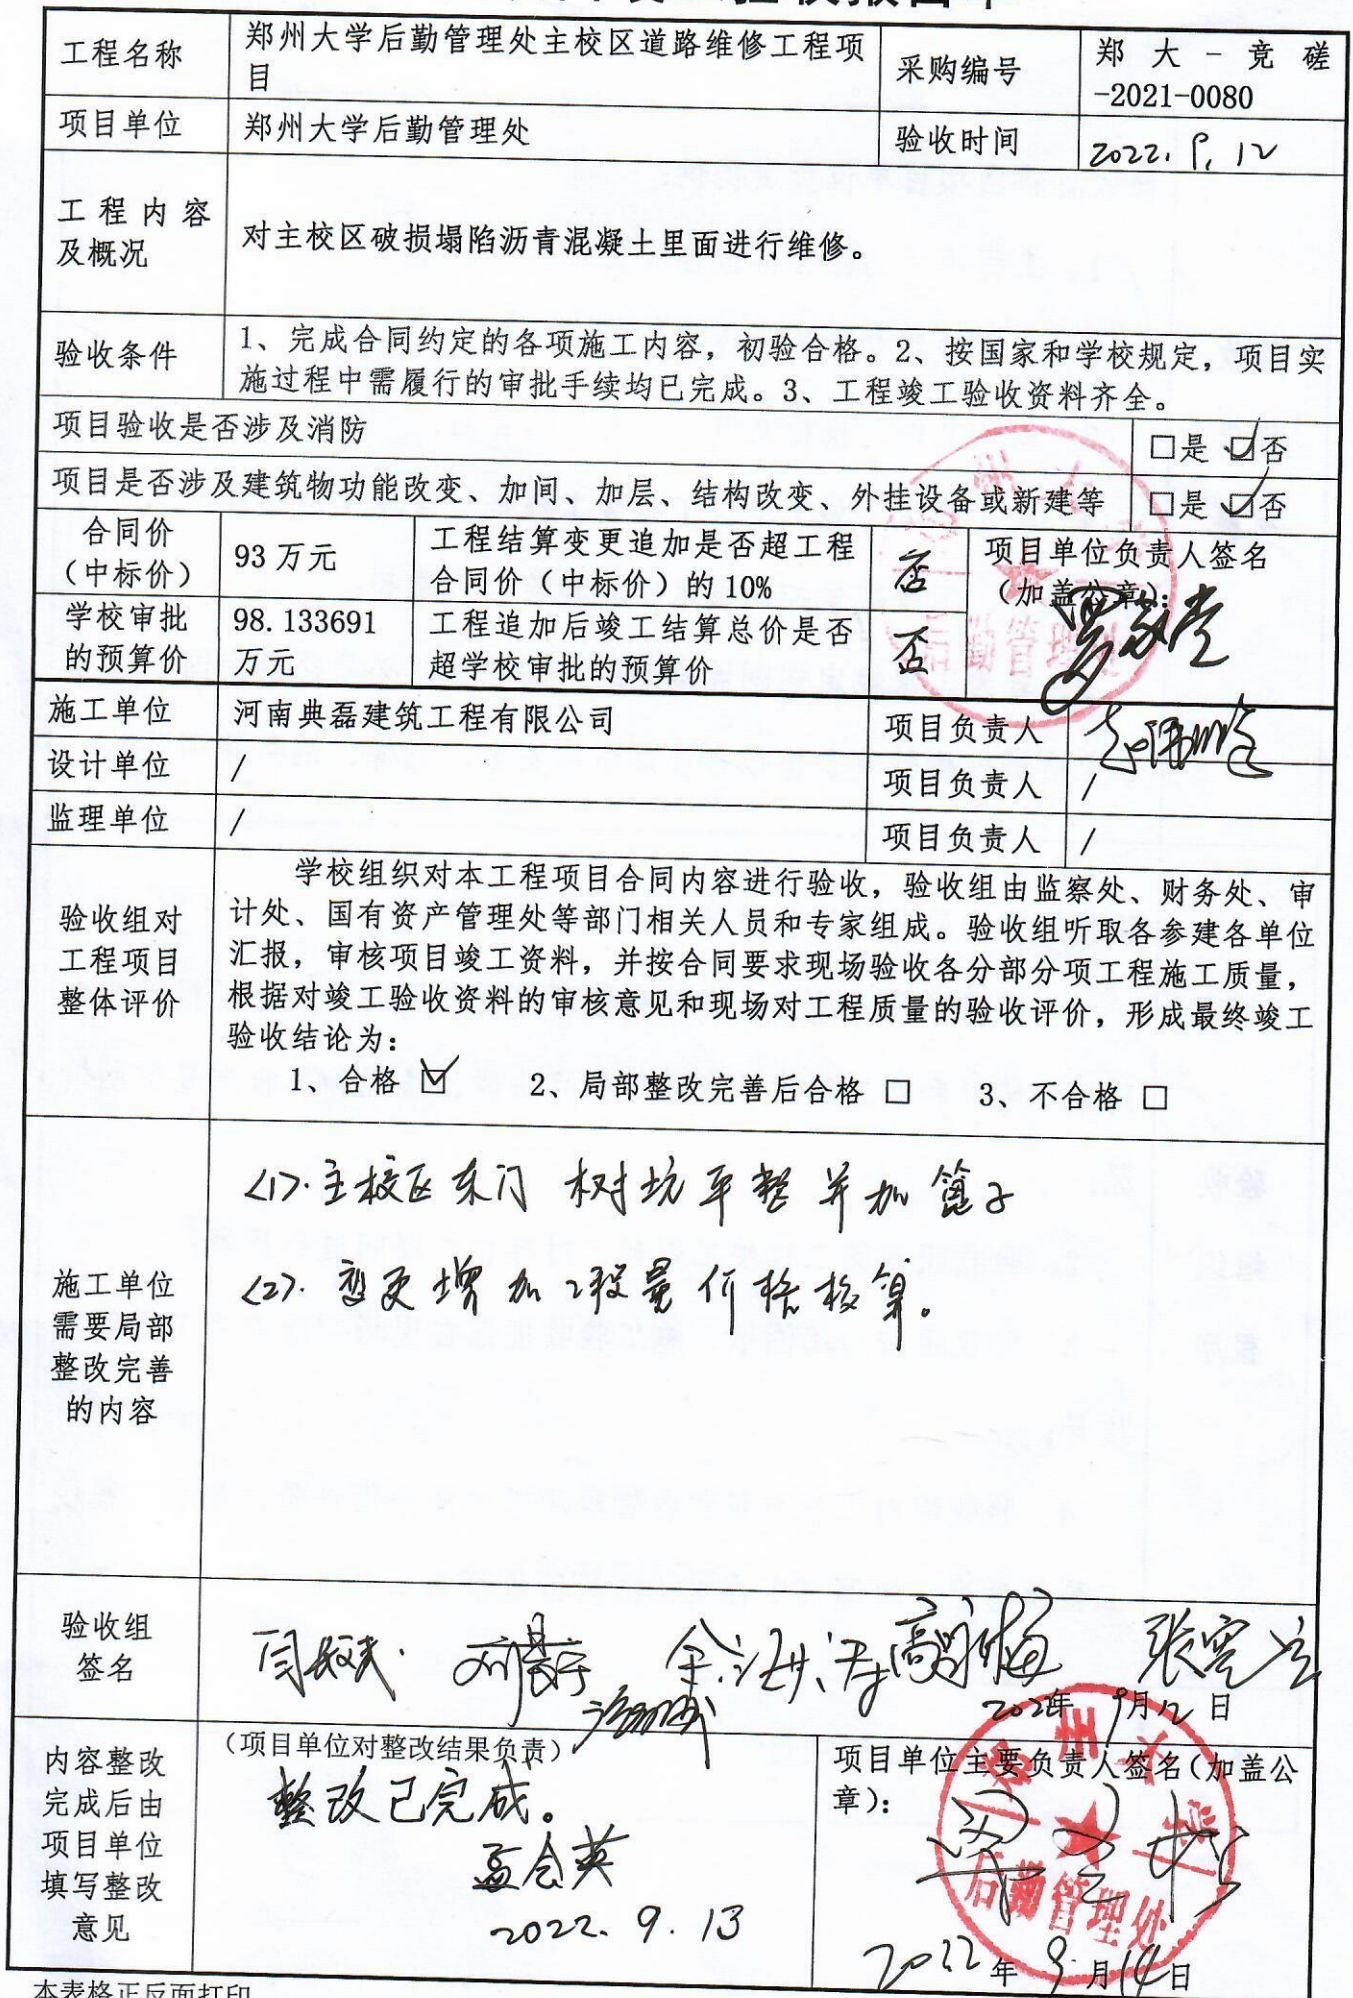 工程名称
郑州大学后勤管理处主校区道路维修工程项
目
采购编号
郑大-竞磋
-2021-0080
项目单位
郑州大学后勤管理处
验收时间
2022.9.12
工程内容
及概况
对主校区破损塌陷沥青混凝土里面进行维修。
验收条件
1、完成合同约定的各项施工内容，初验合格。2、按国家和学校规定，项目实
施过程中需履行的审批手续均已完成。3、工程竣工验收资料齐全。
项目验收是否涉及消防
□是 ☑否
项目是否涉及建筑物功能改变、加间、加层、结构改变、外挂设备或新建等
□是 ☑否
合同价
（中标价）
93万元
工程结算变更追加是否超工程
合同价（中标价）的10%
否
项目单位负责人签名
（加盖公章）：
学校审批
的预算价
98.133691
万元
工程追加后竣工结算总价是否
超学校审批的预算价
否
施工单位
河南典磊建筑工程有限公司
项目负责人
设计单位
/
项目负责人
/
监理单位
/
项目负责人
/
验收组对
工程项目
整体评价
学校组织对本工程项目合同内容进行验收，验收组由监察处、财务处、审
计处、国有资产管理处等部门相关人员和专家组成。验收组听取各参建各单位
汇报，审核项目竣工资料，并按合同要求现场验收各分部分项工程施工质量，
根据对竣工验收资料的审核意见和现场对工程质量的验收评价，形成最终竣工
验收结论为：
1、合格 ☑ 2、局部整改完善后合格 □ 3、不合格 □
施工单位
需要局部
整改完善
的内容
<1>.主校区东门 树坑平整并加篦子
<2>.变更增加工程量价格核算。
验收组
签名
2022年 9月12日
内容整改
完成后由
项目单位
填写整改
意见
（项目单位对整改结果负责）
整改已完成。
孟会英
2022.9.13
项目单位主要负责人签名（加盖公
章）：
郑州大学
后勤管理处
2022年 9月14日
本表格正反面打印